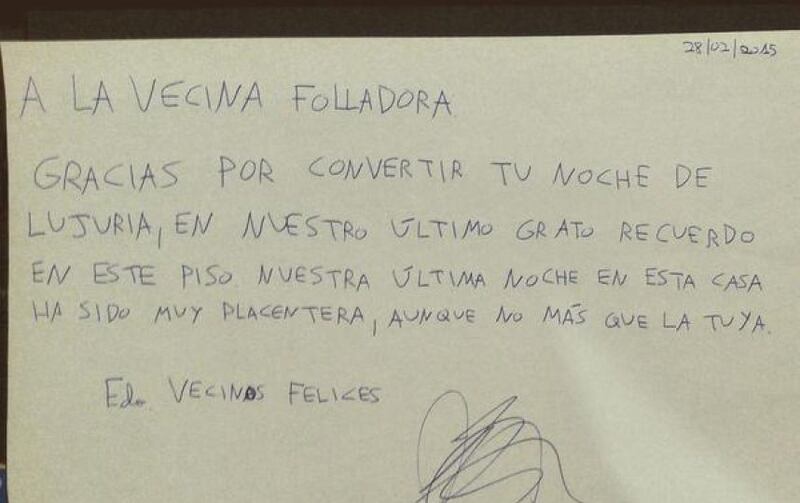 28/02/2015
A LA VECINA FOLLADORA
GRACIAS POR CONVERTIR TU NOCHE DE
LUJURIA, EN NUESTRO ÚLTIMO GRATO RECUERDO
EN ESTE PISO. NUESTRA ÚLTIMA NOCHE EN ESTA CASA
HA SIDO MUY PLACENTERA, AUNQUE NO MÁS QUE LA TUYA.
Fdo. VECINOS FELICES